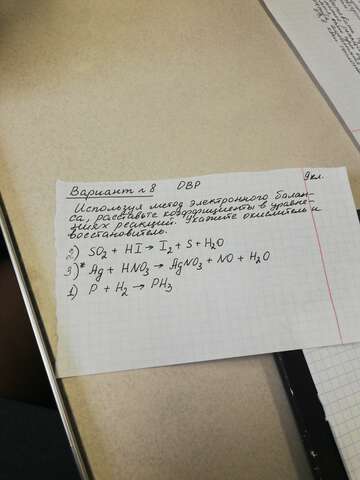 9 кл.
Вариант №8 ОВР
Используя метод электронного балан-
са, расставьте коэффициенты в уравне-
ниях реакций. Укажите окислитель и
восстановитель.
2) SO₂ + HI → I₂ + S + H₂O
3)* Ag + HNO₃ → AgNO₃ + NO + H₂O
1) P + H₂ → PH₃